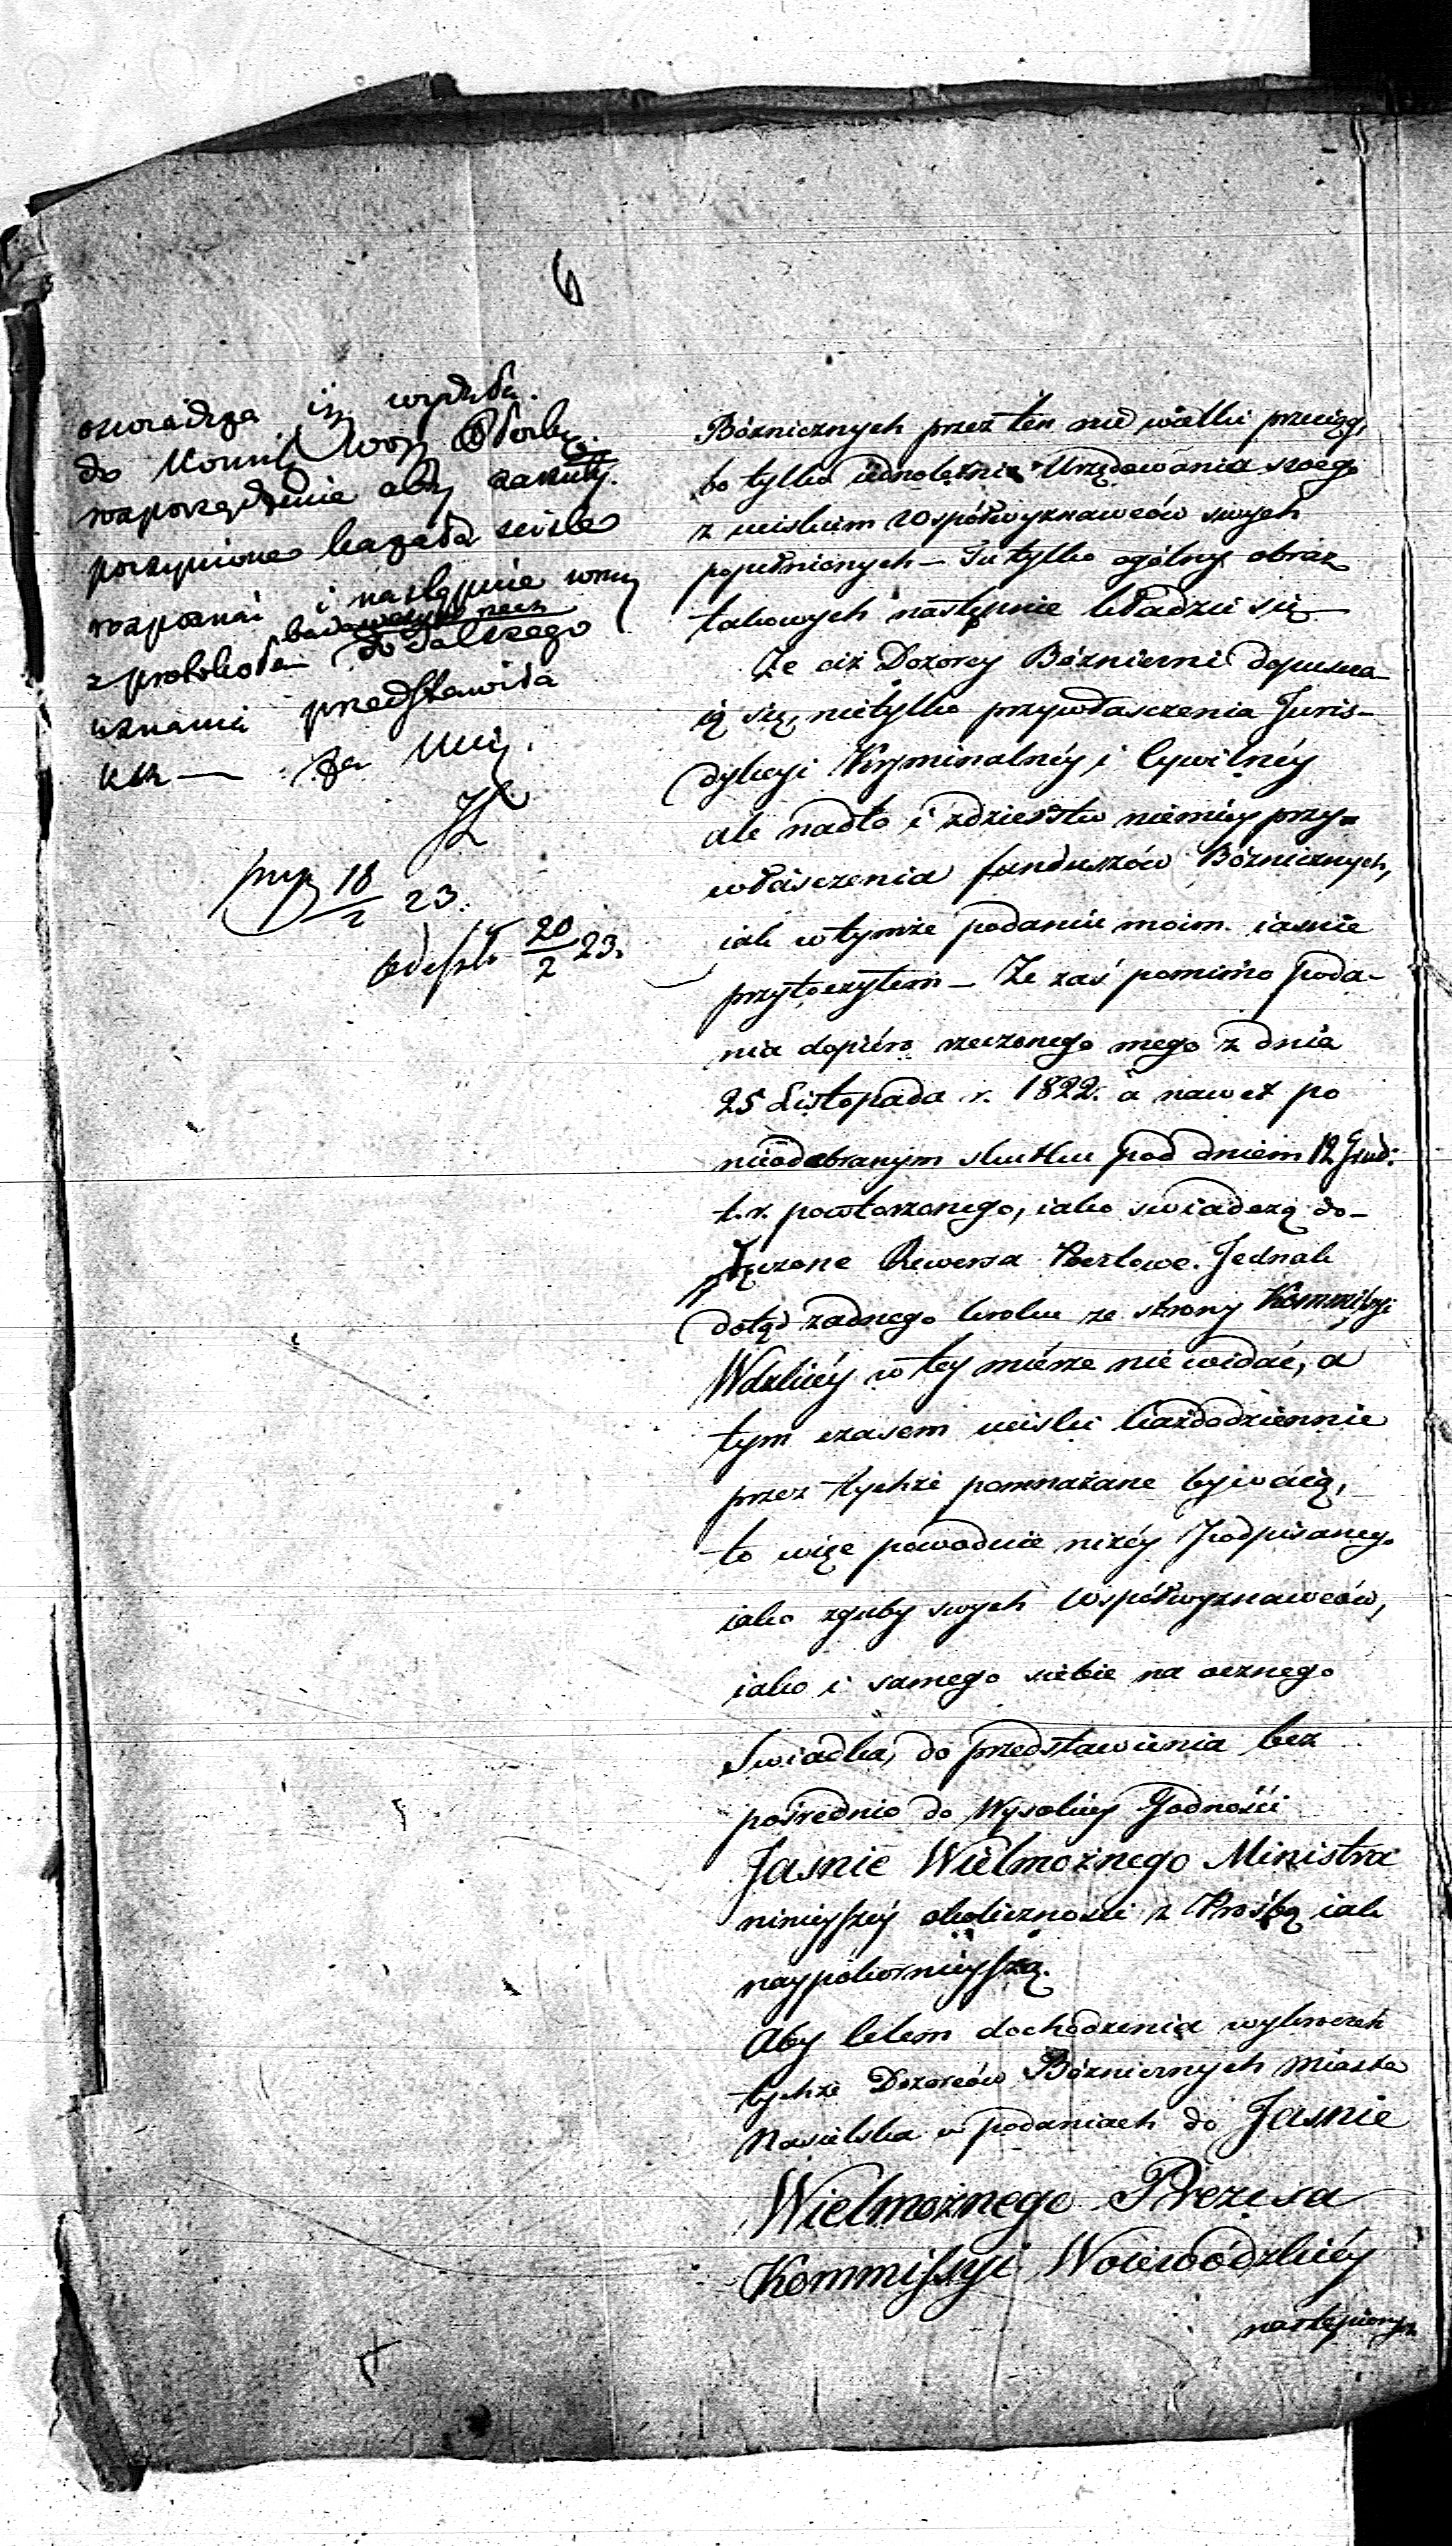 6
oświadcza iż wydała
do Kommis. Woj. Płockiey
rozporządzenie aby zarzuty
poczynione kazała ściśle
rozpoznać i następnie wraz
z protokołem do dalszego
uznania przedstawiła
za Min.
18/2 23.
20/2 23.
Bóznicznych przez ten nie wielki przeciąg,
bo tylko iednoletnie Urzędowania swego
z uciskiem Współwyznawców swych
popełnionych — Tu tylko ogólny obraz
takowych następnie kładzie się
Że ciż Dozorcy Bóżniczni dopuszcza-
ią się, nietylko przywłasczenia Juris-
dykcyi Kryminalnéy i Cywilnéy
ale nadto i zdzierstw niemniey przy-
właszczenia funduszów Bóżnicznych,
iak w tymże podaniu moim iasnie
przytoczyłem — Że zaś pomimo poda-
nia dopiéro rzeczonego mego z dnia
25 Listopada r. 1822. a nawet po
nieodebranym skutku pod dniem 12 Grud:
t. r. powtorzonego, iako swiadczą do-
łączone Rewersa Pocztowe. Jednak
dotąd żadnego kroku ze strony Kommissyi
Wdzkiéy w tey miérze nie widać, a
tym czasem uciski każdodziennie
przez tychże pomnażane bywaią,
to więc powoduie niżéy Podpisanego
iako zguby swych Współwyznawców,
iako i samego siebie na ocznego
Swiadka, do przedstawienia bez
pośrednio do Wysokiey Godności
Jasnie Wielmożnego Ministra
ninieyszéy okoliczności z Prośbą iak
naypokornieyszą.
Aby celem dochodzenia wykroczeń
tychże Dozorców Bóżnicznych Miasta
Nasielska w podaniach do Jasnie
Wielmożnego Prezesa
Kommissyi Woiewódzkiéy